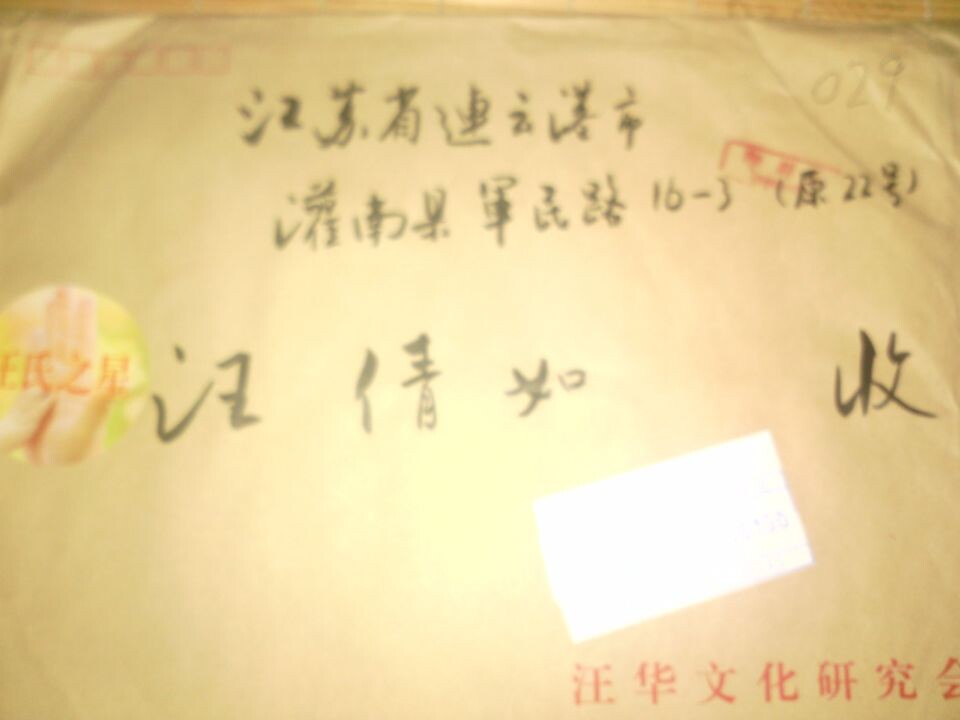 029
江苏省连云港市
灌南县軍民路16-3（原22号）
汪氏之星
汪倩如 收
汪华文化研究会